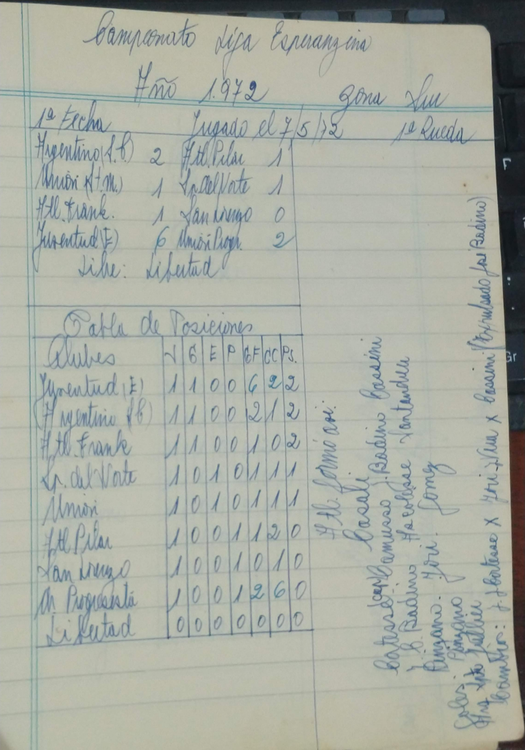 Campeonato Liga Esperanzina
Año 1.972 Zona Sur
1ª Fecha Jugado el 7/5/72 1ª Rueda
Argentino (S.C) 2 Atl. Pilar 1
Unión 1 Sp. del Norte 1
Atl. Frank. 1 San Lorenzo 0
Juventud (E) 6 Unión Progr. 2
Libre: Libertad
Tabla de Posiciones
Clubes J G E P GF GC Ps.
Juventud (E) 1 1 0 0 6 2 2
Argentino 1 1 0 0 2 1 2
Atl. Frank 1 1 0 0 1 0 2
Sp. del Norte 1 0 1 0 1 1 1
Unión 1 0 1 0 1 1 1
Atl Pilar 1 0 0 1 1 2 0
San Lorenzo 1 0 0 1 0 1 0
Un Progresista 1 0 0 1 2 6 0
Libertad 0 0 0 0 0 0 0
Atl. formó así:
Casali
Badino Bassini
Badino Santandreu
Pinzano. Gomez
Goles: Pinzano
Cambios: x José Luis x Bassini (Expulsado José Badino)